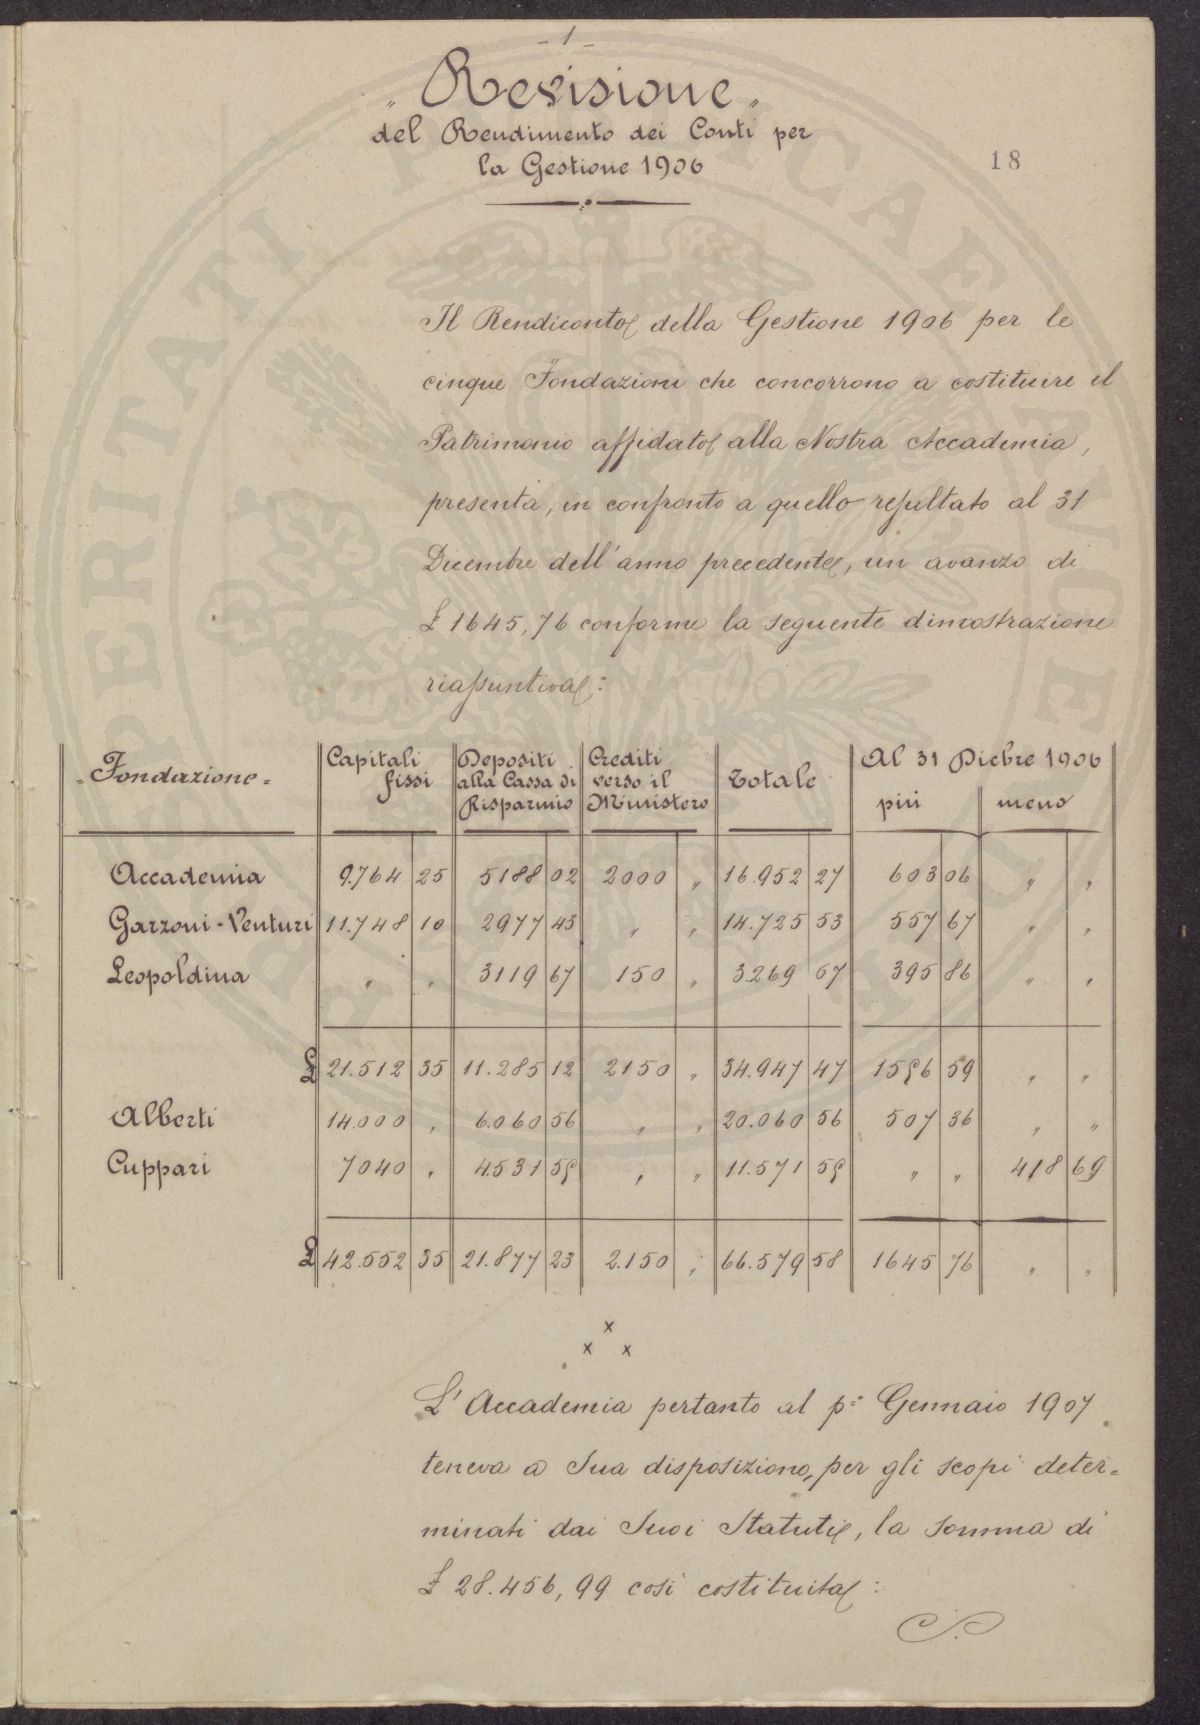 - 1 -
"Revisione"
del Rendimento dei Conti per
la Gestione 1906
18
Il Rendiconto della Gestione 1906 per le
cinque Fondazioni che concorrono a costituire il
Patrimonio affidato alla Nostra Accademia,
presenta, in confronto a quello resultato al 31
Dicembre dell'anno precedente, un avanzo di
£ 1645,76 conforme la seguente dimostrazione
riassuntiva:
"Fondazione" Capitali fissi Depositi alla Cassa di Risparmio Crediti verso il Ministero Totale Al 31 Dicbre 1906 più meno
Accademia 9.764 25 5188 02 2000 " 16.952 27 603 06 " "
Garzoni-Venturi 11.748 10 2977 43 " " 14.725 53 557 67 " "
Leopoldina " " 3119 67 150 " 3.269 67 395 86 " "
£ 21.512 35 11.285 12 2150 " 34.947 47 1556 59 " "
Alberti 14.000 " 6.060 56 " " 20.060 56 507 36 " "
Cuppari 7040 " 4.531 55 " " 11.571 55 " " 418 69
£ 42.552 35 21.877 23 2.150 " 66.579 58 1645 76 " "
x
x x
L'Accademia pertanto al p° Gennaio 1907
teneva a Sua disposizione, per gli scopi deter=
minati dai Suoi Statuti, la somma di
£ 28.456,99 così costituita:
PERITATI